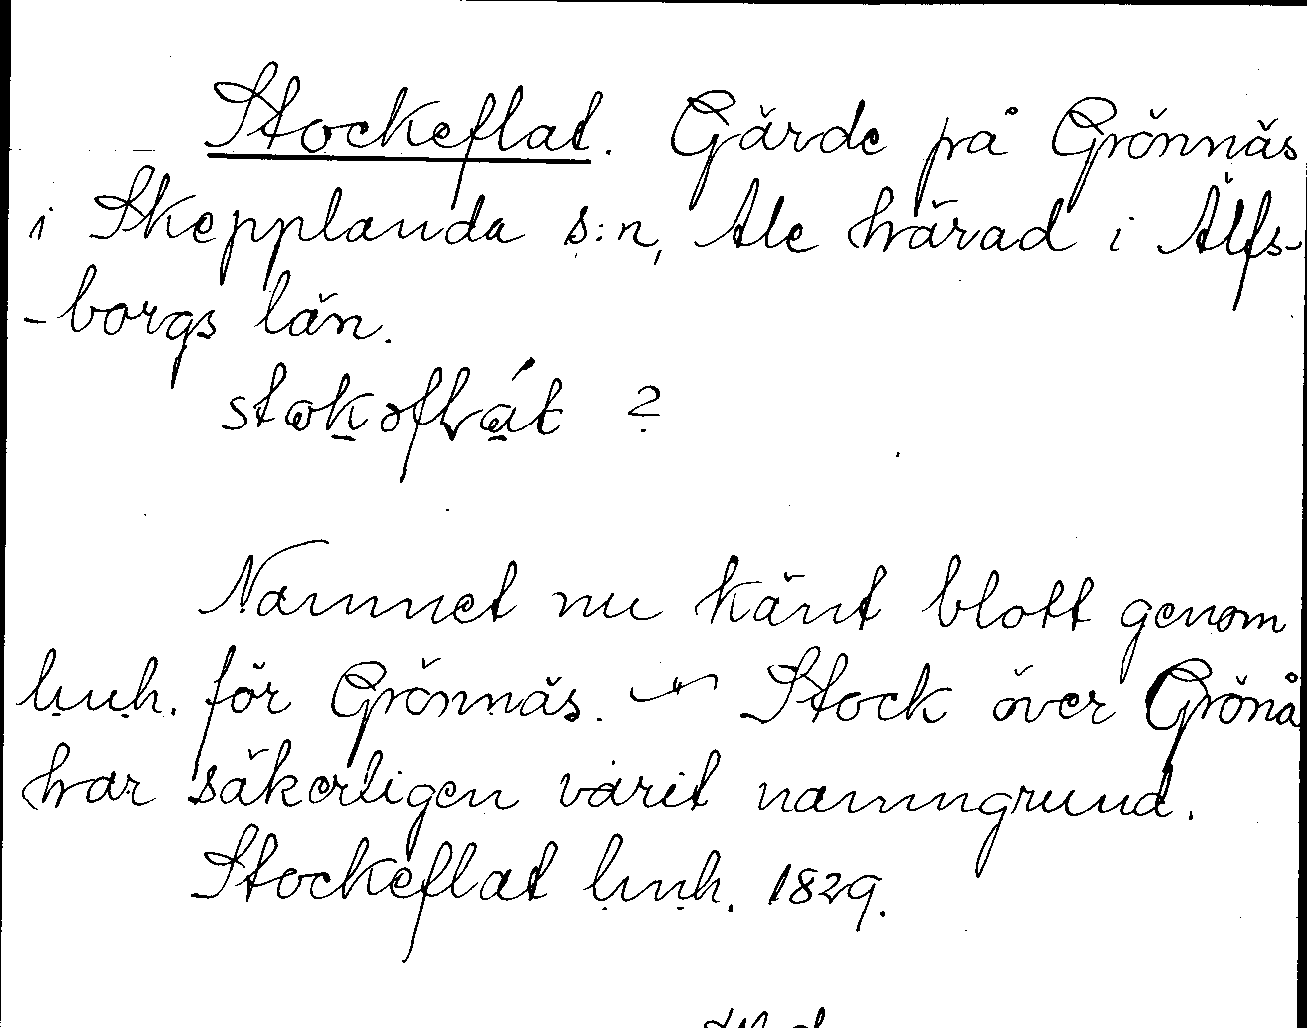 Stockeflat. Gärde på Grönnäs
i Skepplanda s:n, Ale härad i Älfs-
-borgs län.
?
Namnet nu känt blott genom
lmh. för Grönnäs. — " — Stock över Grönå
har säkerligen varit namngrund.
Stockeflat lmh. 1829.